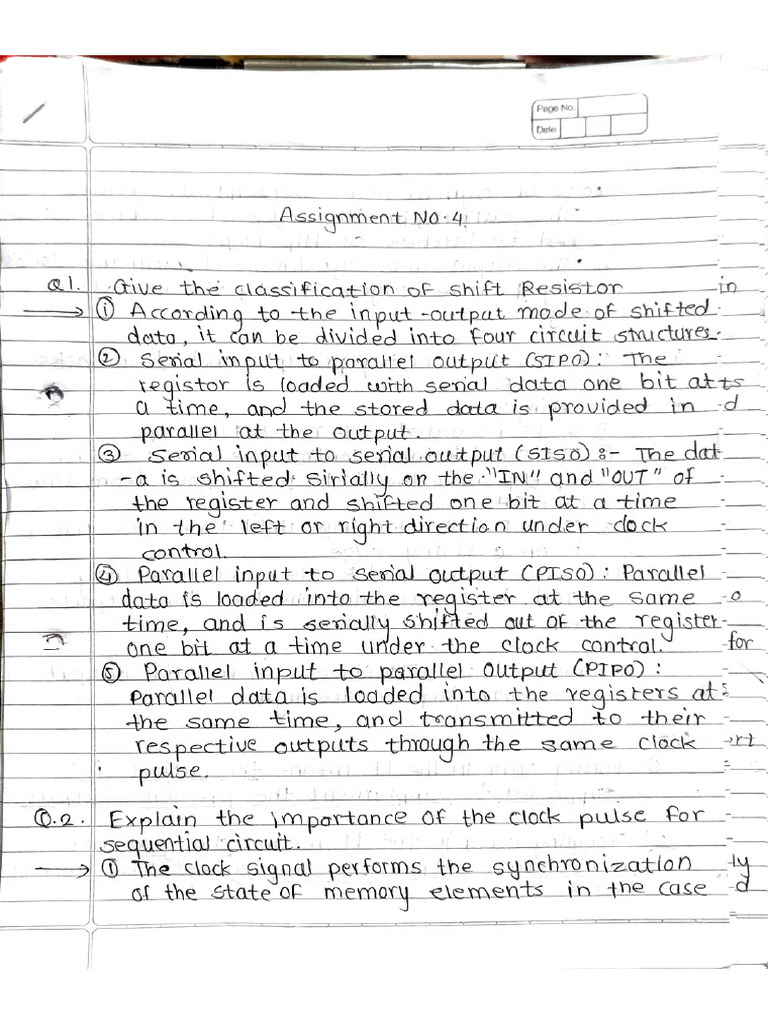 Page No.
Date
Assignment No. 4
Q1. Give the classification of shift Resistor in
→ ① According to the input-output mode of shifted
data, it can be divided into four circuit structures.
② Serial input to parallel output (SIPO): The
registor is loaded with serial data one bit at ts
a time, and the stored data is provided in d
parallel at the output.
③ Serial input to serial output (SISO) :- The dat
-a is shifted sirially on the "IN" and "OUT" of
the register and shifted one bit at a time
in the left or right direction under clock
control.
④ Parallel input to serial output (PISO): Parallel
data is loaded into the register at the same o
time, and is serially shifted out of the register
one bit at a time under the clock control. for
⑤ Parallel input to parallel output (PIPO):
Parallel data is loaded into the registers at
the same time, and transmitted to their
respective outputs through the same clock rt
pulse.
Q.2. Explain the importance of the clock pulse for
sequential circuit.
→ ① The clock signal performs the synchronization ly
of the state of memory elements in the case d